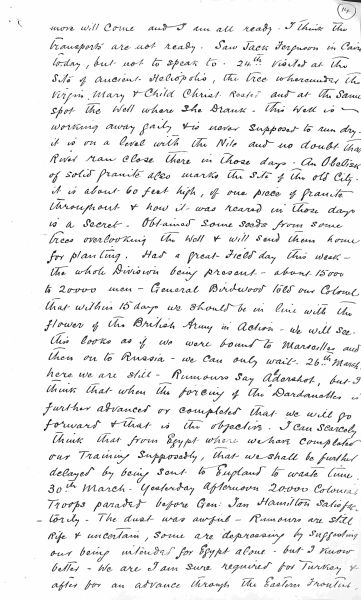 14
more will come and I am all ready. I think the
transports are not ready. Saw Jack Ferguson in Cairo
today, but not to speak to. 24th Visited at the
Site of ancient Heliopolis, the tree whereunder the
Virgin Mary & Child Christ Rested and at the Same
spot the Well where She Drank - this Well is
working away gaily & is never supposed to run dry.
it is on a level with the Nile and no doubt that
River ran close there in those days - An Obelisk
of solid granite also marks the Site of the old City.
it is about 60 feet high, of one piece of granite
throughout & how it was reared in those days
is a Secret - Obtained Some seeds from some
trees overlooking the Well & will send them home
for planting. Had a great Field day this week -
the whole Division being present - about 15000
to 20000 men - General Birdwood told our Colonel
that within 15 days we should be in line with the
flower of the British Army in Action - we will see.
this looks as if we were bound to Marseilles and
then on to Russia - we can only wait - 26th March,
here we are still - Rumours Say Adershot, but I
think that when the forcing of the Dardanelles is
further advanced or completed that we will go
forward & that is the objective. I can scarcely
think that from Egypt where we have completed
our Training Supposedly, that we shall be further
delayed by being sent to England to waste time.
30th March - Yesterday afternoon 20000 Colonial
Troops paraded before Gen: Ian Hamilton Satisfac
-torily - The dust was awful - Rumours are still
Rife & uncertain, some are depressing by suggesting
our being intended for Egypt alone - but I know
better - We are I am sure required for Turkey &
after for an advance through the Eastern Frontiers.